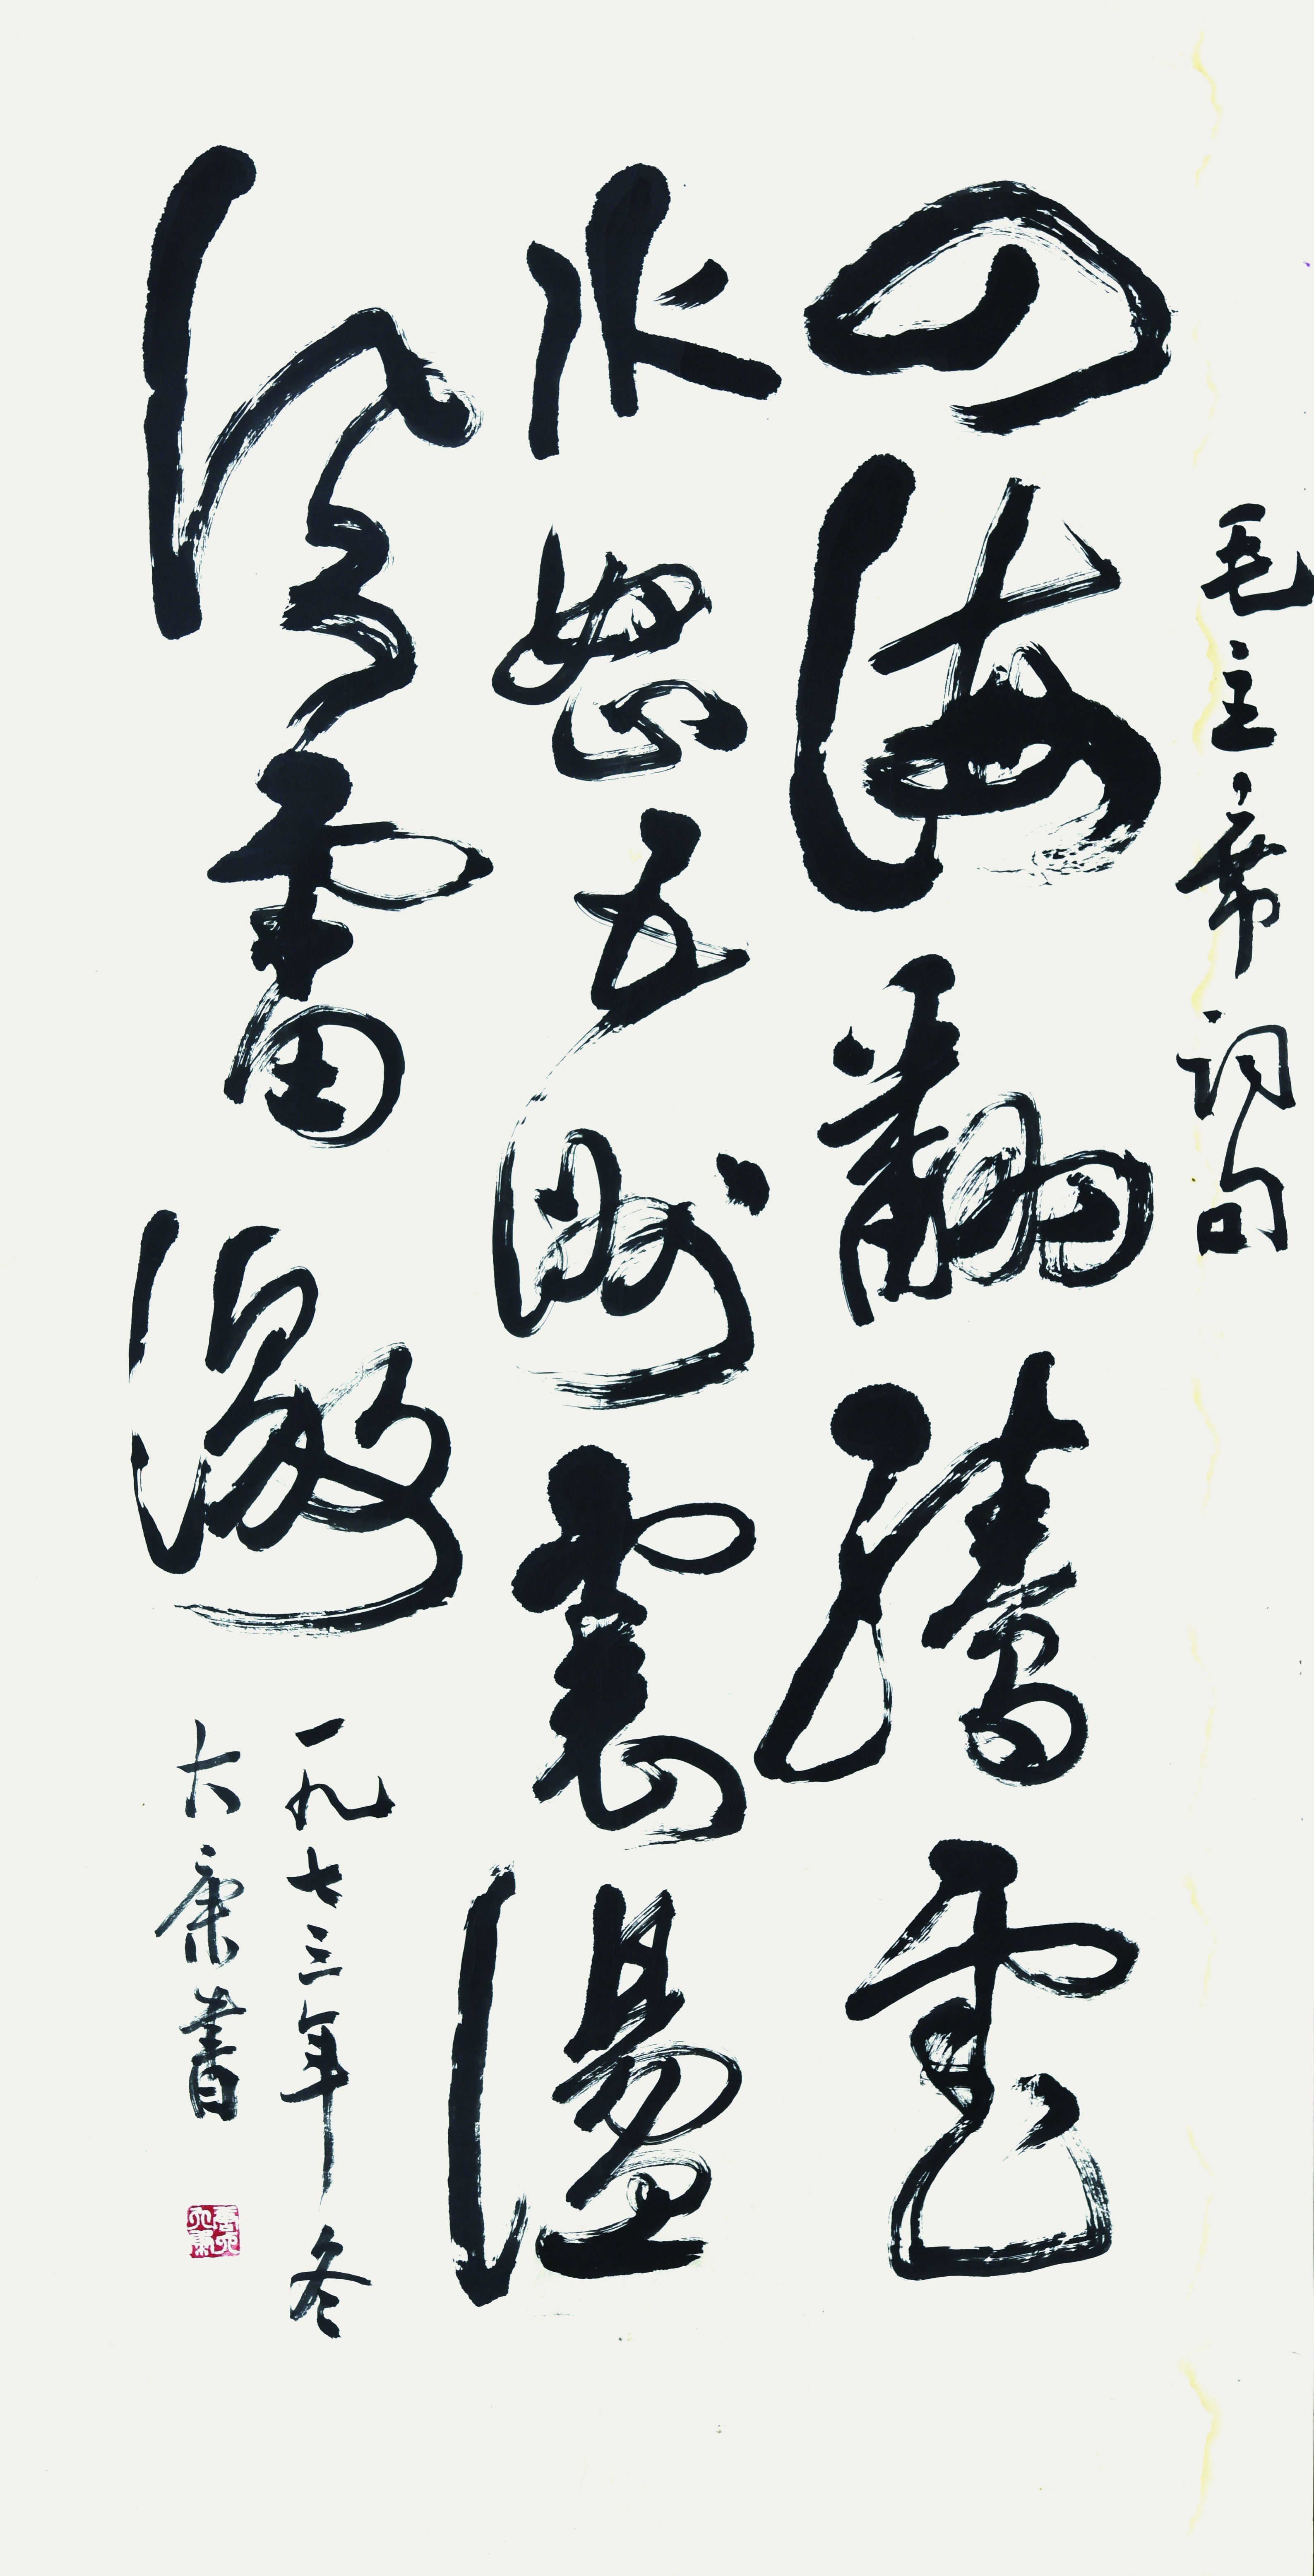 毛主席词句
四海翻腾云
水怒五洲震荡
风雷激
一九七三年冬
大康书